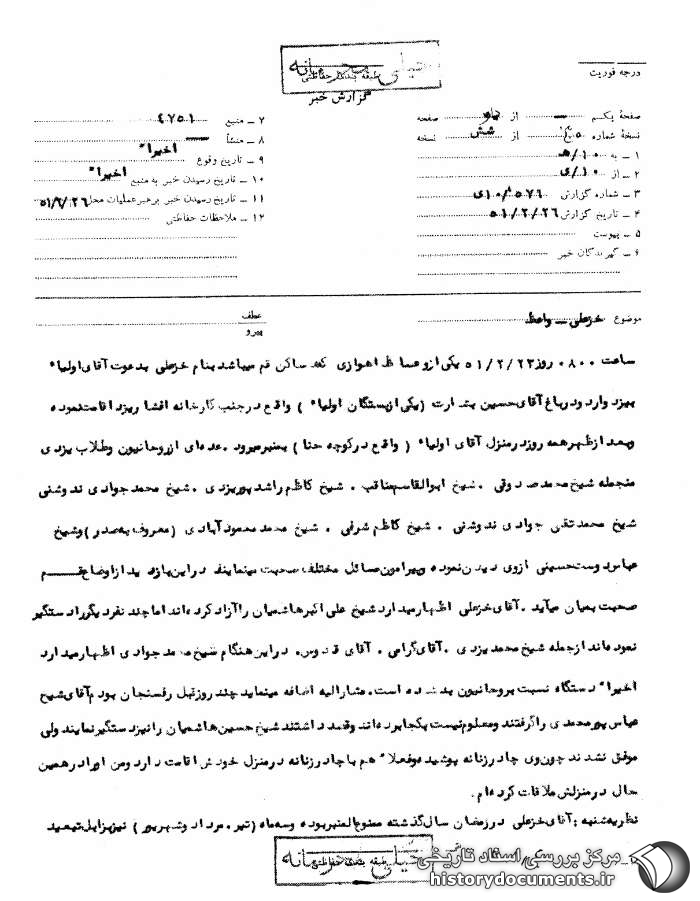 خیلی محرمانه
طبقه بندی حفاظتی
گزارش خبر
درجه فوریت
صفحهٔ یکم — از دو صفحه
نسخهٔ شماره از شش نسخه
۱ – به ۱۰/هـ
۲ – از ۱۰/ی
۳ – شماره گزارش ۱۰/۵۷۶ی
۴ – تاریخ گزارش ۵۱/۲/۲۶
۵ – پیوست
۶ – گیرندگان خبر
۷ – منبع ۴۷۵۱
۸ – منشأ —
۹ – تاریخ وقوع اخیراً
۱۰ – تاریخ رسیدن خبر به منبع اخیراً
۱۱ – تاریخ رسیدن خبر برهبر عملیات محل ۵۱/۲/۲۶
۱۲ – ملاحظات حفاظتی
موضوع خزعلی – واعظ
عطف
پیرو
ساعت ۰۸۰۰ روز ۵۱/۲/۲۳ یکی از وعاظ اهوازی که ساکن قم میباشد بنام خزعلی بدعوت آقای اولیاء
بیزد وارد و در باغ آقای حسین بشارت (یکی از بستگان اولیاء) واقع در جنب کارخانه افشار یزد اقامت نموده
و بعد از ظهر همه روز در منزل آقای اولیاء (واقع در کوچه حنا) بمنبر میرود . عده‌ای از روحانیون و طلاب یزدی
منجمله شیخ محمد صدوقی . شیخ ابوالقاسم مناقب . شیخ کاظم راشد پور یزدی . شیخ محمد جوادی ندوشنی
شیخ محمد تقی جوادی ندوشنی . شیخ کاظم شرفی . شیخ محمد محمود آبادی (معروف به صدر) و شیخ
عباس دوست حسینی از وی دیدن نموده و پیرامون مسائل مختلف صحبت مینمایند در این بازدید از اوضاع قم
صحبت بمیان میآید . آقای خزعلی اظهار میدارد شیخ علی اکبر هاشمیان را آزاد کرده‌اند اما چند نفر دیگر را دستگیر
نموده‌اند از جمله شیخ محمد یزدی . آقای گرامی . آقای قدوس . در این هنگام شیخ محمد جوادی اظهار میدارد
اخیراً دستگاه نسبت بروحانیون بد شده است . مشارالیه اضافه مینماید چند روز قبل رفسنجان بودم آقای شیخ
عباس پور محمدی را گرفتند و معلوم نیست بکجا برده‌اند و قصد داشتند شیخ حسین هاشمیان را نیز دستگیر نمایند ولی
موفق نشدند چون وی چادر زنانه پوشیده و فعلاً هم با چادر زنانه در منزل خودش اقامت دارد و من او را در همین
حال در منزلش ملاقات کرده‌ام .
نظریه شنبه : آقای خزعلی در رمضان سال گذشته ممنوع المنبر بوده و سه ماه (تیر . مرداد و شهریور) نیز بزابل تبعید
خیلی محرمانه
طبقه بندی حفاظتی
مرکز بررسی اسناد تاریخی
historydocuments.ir